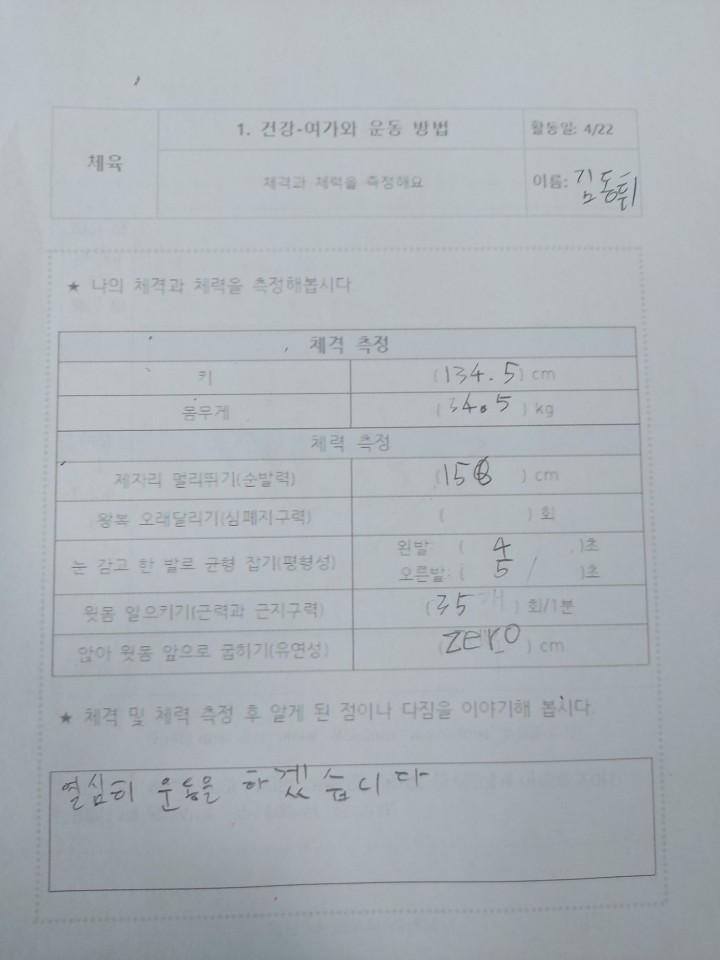 체육
1. 건강-여가와 운동 방법
활동일: 4/22
체격과 체력을 측정해요
이름: 김동휘
★ 나의 체격과 체력을 측정해봅시다
체격 측정
키 (134.5) cm
몸무게 (34.5) kg
체력 측정
제자리 멀리뛰기(순발력) (158) cm
왕복 오래달리기(심폐지구력) ( ) 회
눈 감고 한 발로 균형 잡기(평형성) 왼발: ( 4 )초
오른발: ( 5 )초
윗몸 일으키기(근력과 근지구력) (35개) 회/1분
앉아 윗몸 앞으로 굽히기(유연성) (ZERO) cm
★ 체격 및 체력 측정 후 알게 된 점이나 다짐을 이야기해 봅시다.
열심히 운동을 하겠습니다